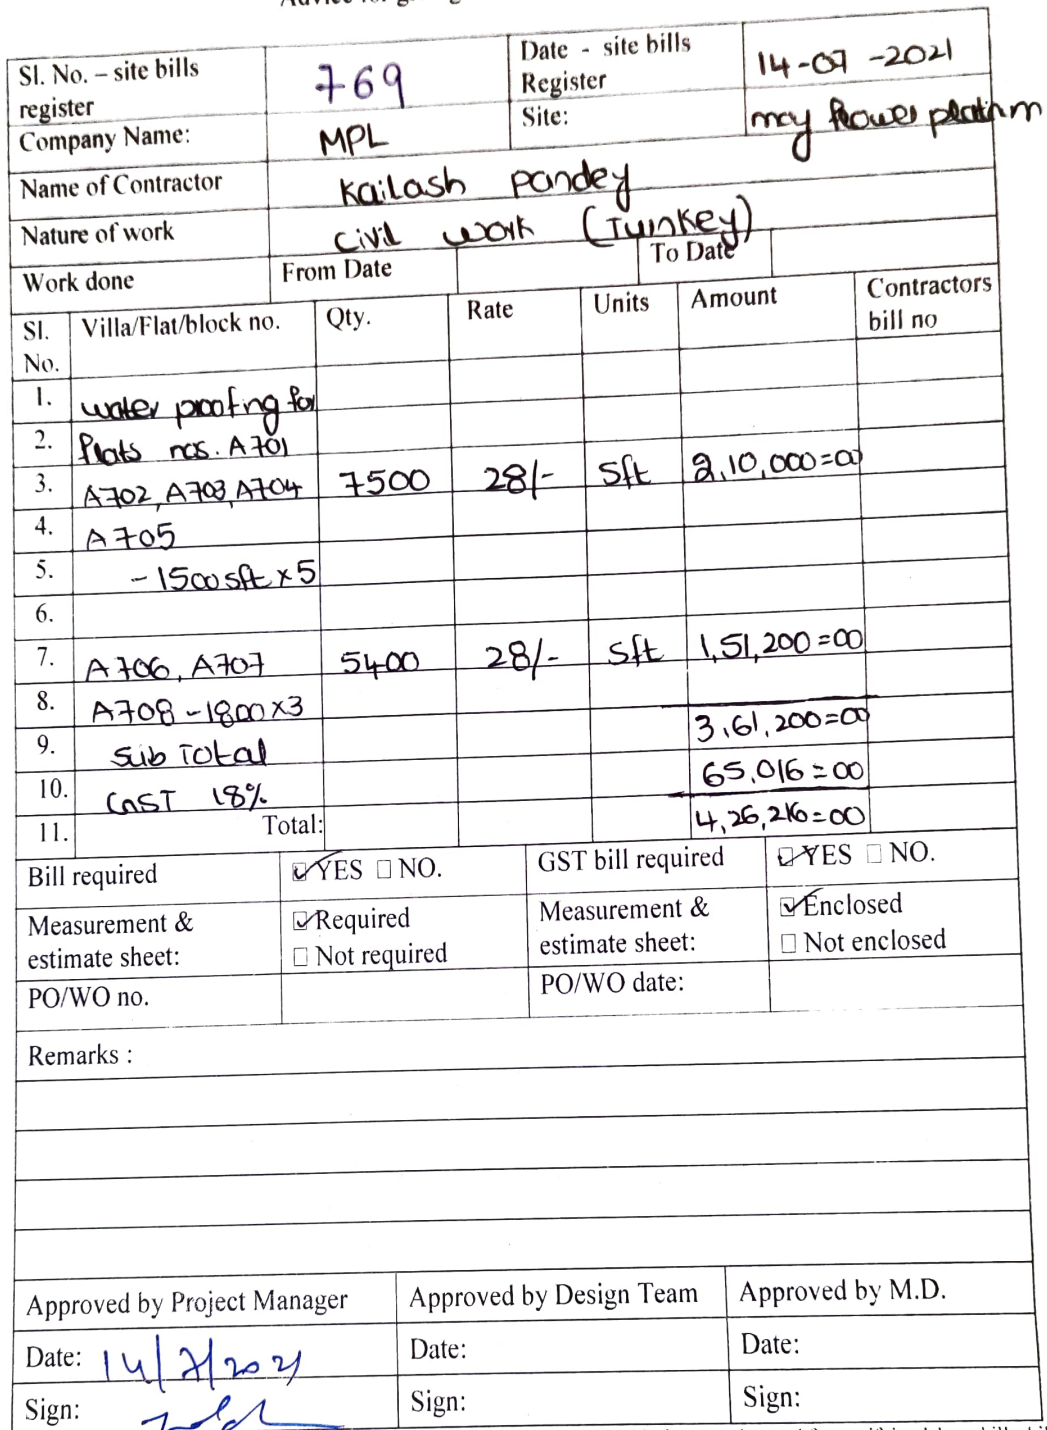 Sl. No. – site bills register 769 Date - site bills Register 14-07-2021
Company Name: MPL Site: may flower platinm
Name of Contractor Kailash pandey
Nature of work civil work (Turnkey)
Work done From Date To Date
Sl. No. Villa/Flat/block no. Qty. Rate Units Amount Contractors bill no
1. water proofng for
2. flats nos. A701
3. A702, A703, A704 7500 28/- Sft 2,10,000=00
4. A705
5. - 1500 sft x 5
6.
7. A706, A707 5400 28/- Sft 1,51,200=00
8. A708 - 1800 x 3
9. Sub Total 3,61,200=00
10. GST 18% 65,016=00
11. Total: 4,26,216=00
Bill required ☑ YES ☐ NO. GST bill required ☑ YES ☐ NO.
Measurement & estimate sheet: ☑ Required ☐ Not required Measurement & estimate sheet: ☑ Enclosed ☐ Not enclosed
PO/WO no. PO/WO date:
Remarks :
Approved by Project Manager Approved by Design Team Approved by M.D.
Date: 14/7/2021 Date: Date:
Sign: Sign: Sign: